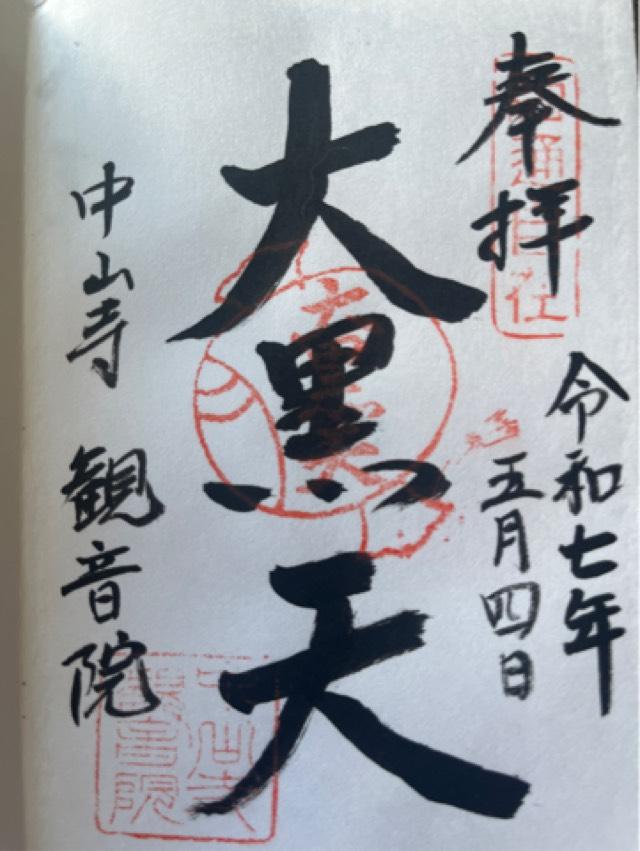 奉拝
令和七年
五月四日
大黒天
中山寺 観音院
中山寺
観音院